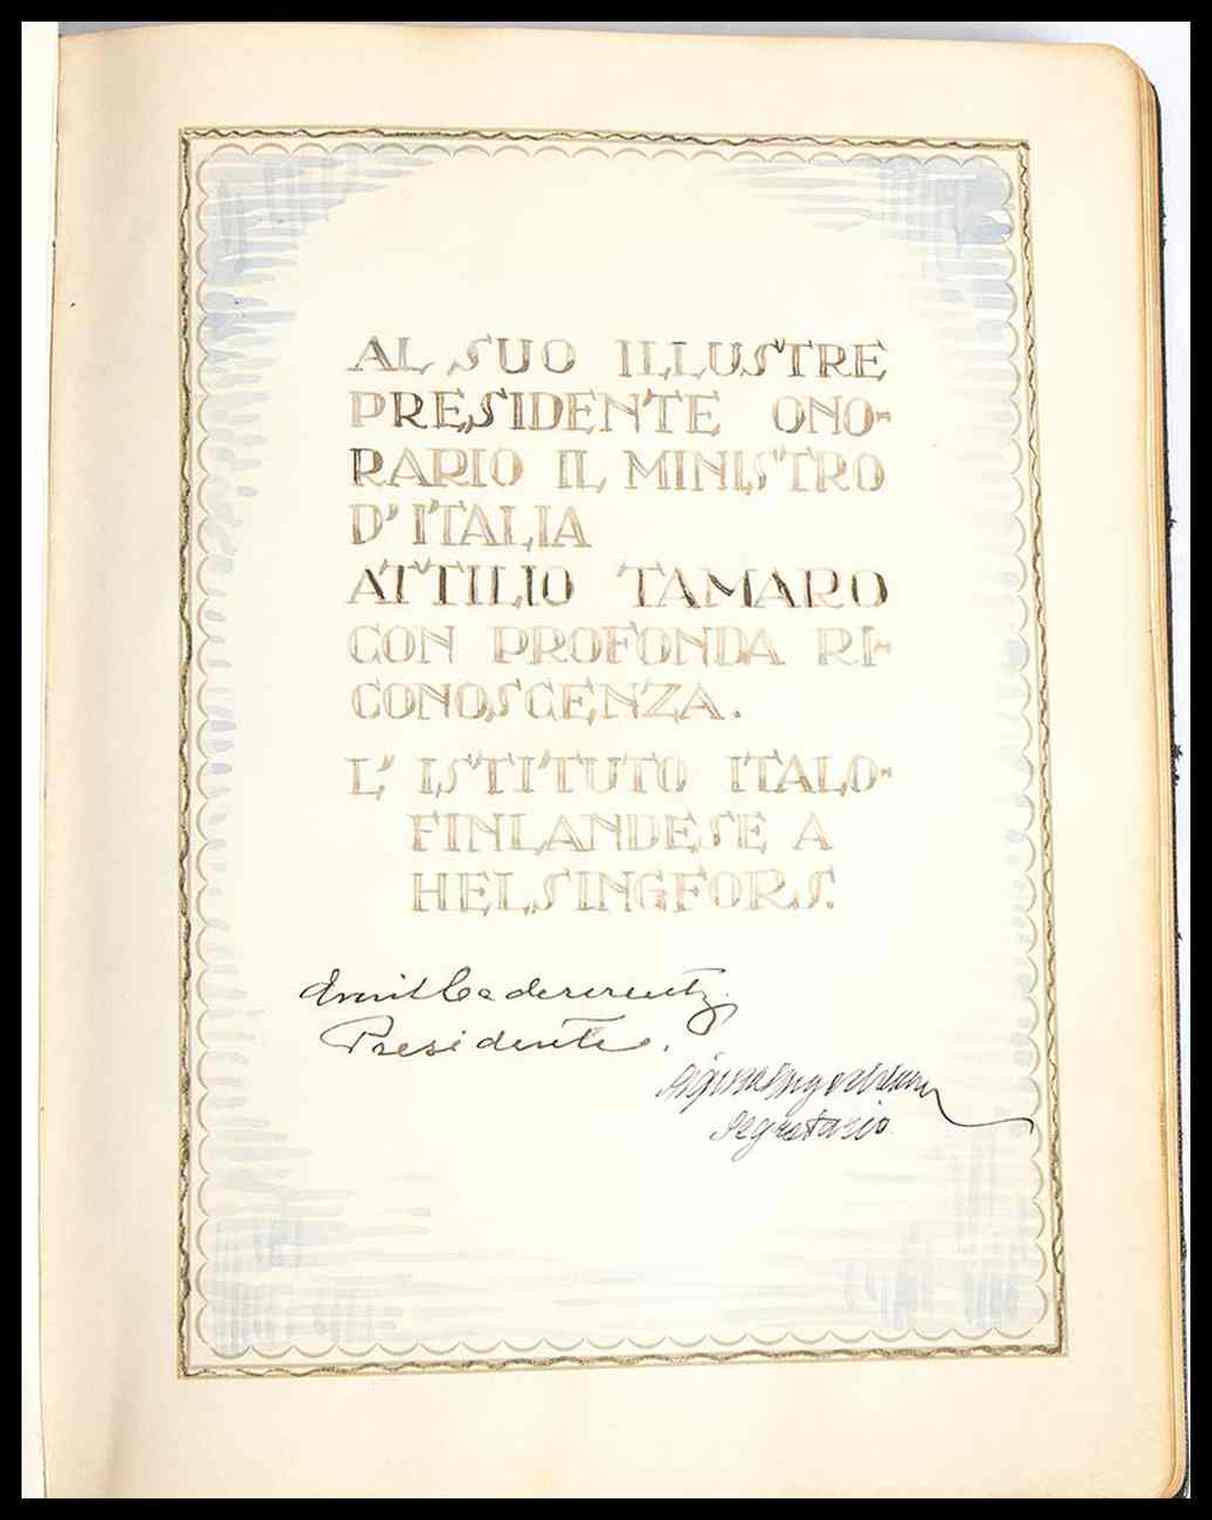 AL SUO ILLUSTRE
PRESIDENTE ONO-
RARIO IL MINISTRO
D'ITALIA
ATTILIO TAMARO
CON PROFONDA RI-
CONOSCENZA.
L'ISTITUTO ITALO-
FINLANDESE A
HELSINGFORS.
Presidente.
Segretario